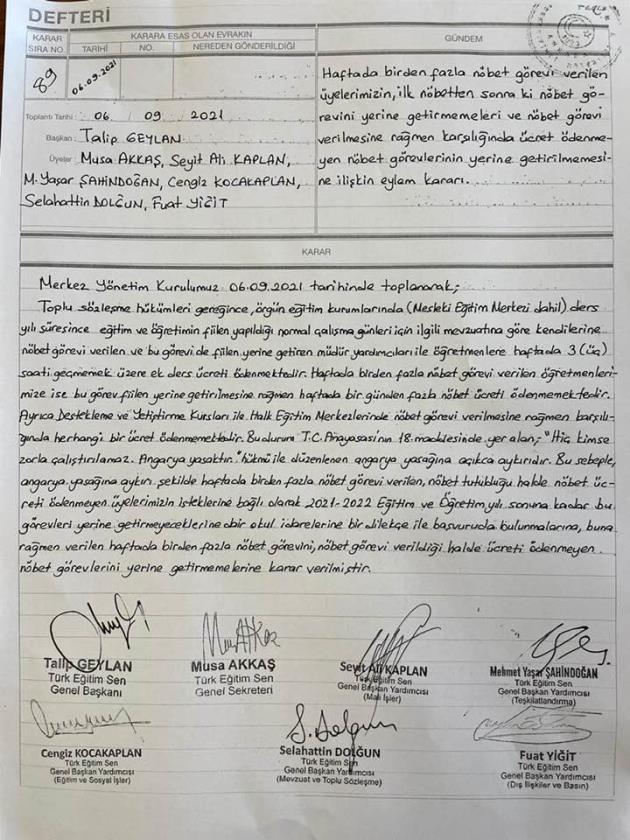 DEFTERİ
KARAR SIRA NO.
KARARA ESAS OLAN EVRAKIN
TARİHİ NO. NEREDEN GÖNDERİLDİĞİ
GÜNDEM
89
06.09.2021
Haftada birden fazla nöbet görevi verilen
üyelerimizin, ilk nöbetten sonra ki nöbet gö-
revini yerine getirmemeleri ve nöbet görevi
verilmesine rağmen karşılığında ücret ödenme-
yen nöbet görevlerinin yerine getirilmemesi-
ne ilişkin eylem kararı.
Toplantı Tarihi : 06 09 2021
Başkan: Talip GEYLAN
Üyeler: Musa AKKAŞ, Seyit Ali KAPLAN,
M. Yaşar ŞAHİNDOĞAN, Cengiz KOCAKAPLAN,
Selahattin DOLĞUN, Fuat YİĞİT
KARAR
Merkez Yönetim Kurulumuz 06.09.2021 tarihinde toplanarak;
Toplu sözleşme hükümleri gereğince, örgün eğitim kurumlarında (Mesleki Eğitim Merkezi dahil) ders
yılı süresince eğitim ve öğretimin fiilen yapıldığı normal çalışma günleri için ilgili mevzuatına göre kendilerine
nöbet görevi verilen ve bu görevi de fiilen yerine getiren müdür yardımcıları ile öğretmenlere haftada 3 (üç)
saati geçmemek üzere ek ders ücreti ödenmektedir. Haftada birden fazla nöbet görevi verilen öğretmenleri-
mize ise bu görev fiilen yerine getirilmesine rağmen haftada bir günden fazla nöbet ücreti ödenmemektedir.
Ayrıca Destekleme ve Yetiştirme Kursları ile Halk Eğitim Merkezlerinde nöbet görevi verilmesine rağmen karşılı-
ğında herhangi bir ücret ödenmemektedir. Bu durum T.C. Anayasası'nın 18. maddesinde yer alan; "Hiç kimse
zorla çalıştırılamaz. Angarya yasaktır." hükmü ile düzenlenen angarya yasağına açıkça aykırıdır. Bu sebeple,
angarya yasağına aykırı şekilde haftada birden fazla nöbet görevi verilen, nöbet tutulduğu halde nöbet üc-
reti ödenmeyen üyelerimizin isteklerine bağlı olarak 2021-2022 Eğitim ve Öğretim yılı sonuna kadar bu
görevleri yerine getirmeyeceklerine dair okul idarelerine bir dilekçe ile başvuruda bulunmalarına, buna
rağmen verilen haftada birden fazla nöbet görevini, nöbet görevi verildiği halde ücreti ödenmeyen
nöbet görevlerini yerine getirmemelerine karar verilmiştir.
Talip GEYLAN
Türk Eğitim Sen
Genel Başkanı
Musa AKKAŞ
Türk Eğitim Sen
Genel Sekreteri
Seyit Ali KAPLAN
Türk Eğitim Sen
Genel Başkan Yardımcısı
(Mali İşler)
Mehmet Yaşar ŞAHİNDOĞAN
Türk Eğitim Sen
Genel Başkan Yardımcısı
(Teşkilatlandırma)
Cengiz KOCAKAPLAN
Türk Eğitim Sen
Genel Başkan Yardımcısı
(Eğitim ve Sosyal İşler)
S. Dolgun
Selahattin DOLĞUN
Türk Eğitim Sen
Genel Başkan Yardımcısı
(Mevzuat ve Toplu Sözleşme)
Fuat YİĞİT
Türk Eğitim Sen
Genel Başkan Yardımcısı
(Dış İlişkiler ve Basın)